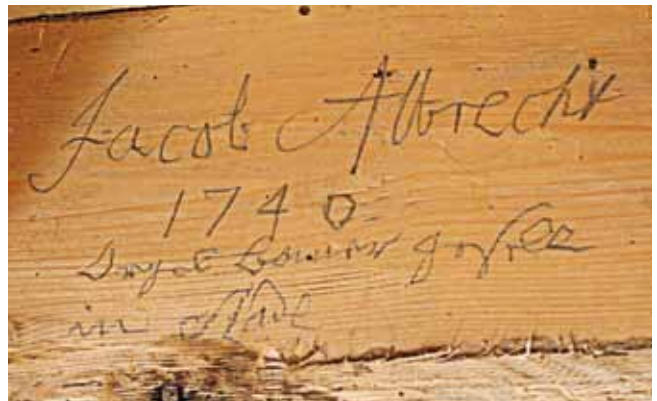 Jacob Albrecht
1740
Orgel bauer geselle
in Stade